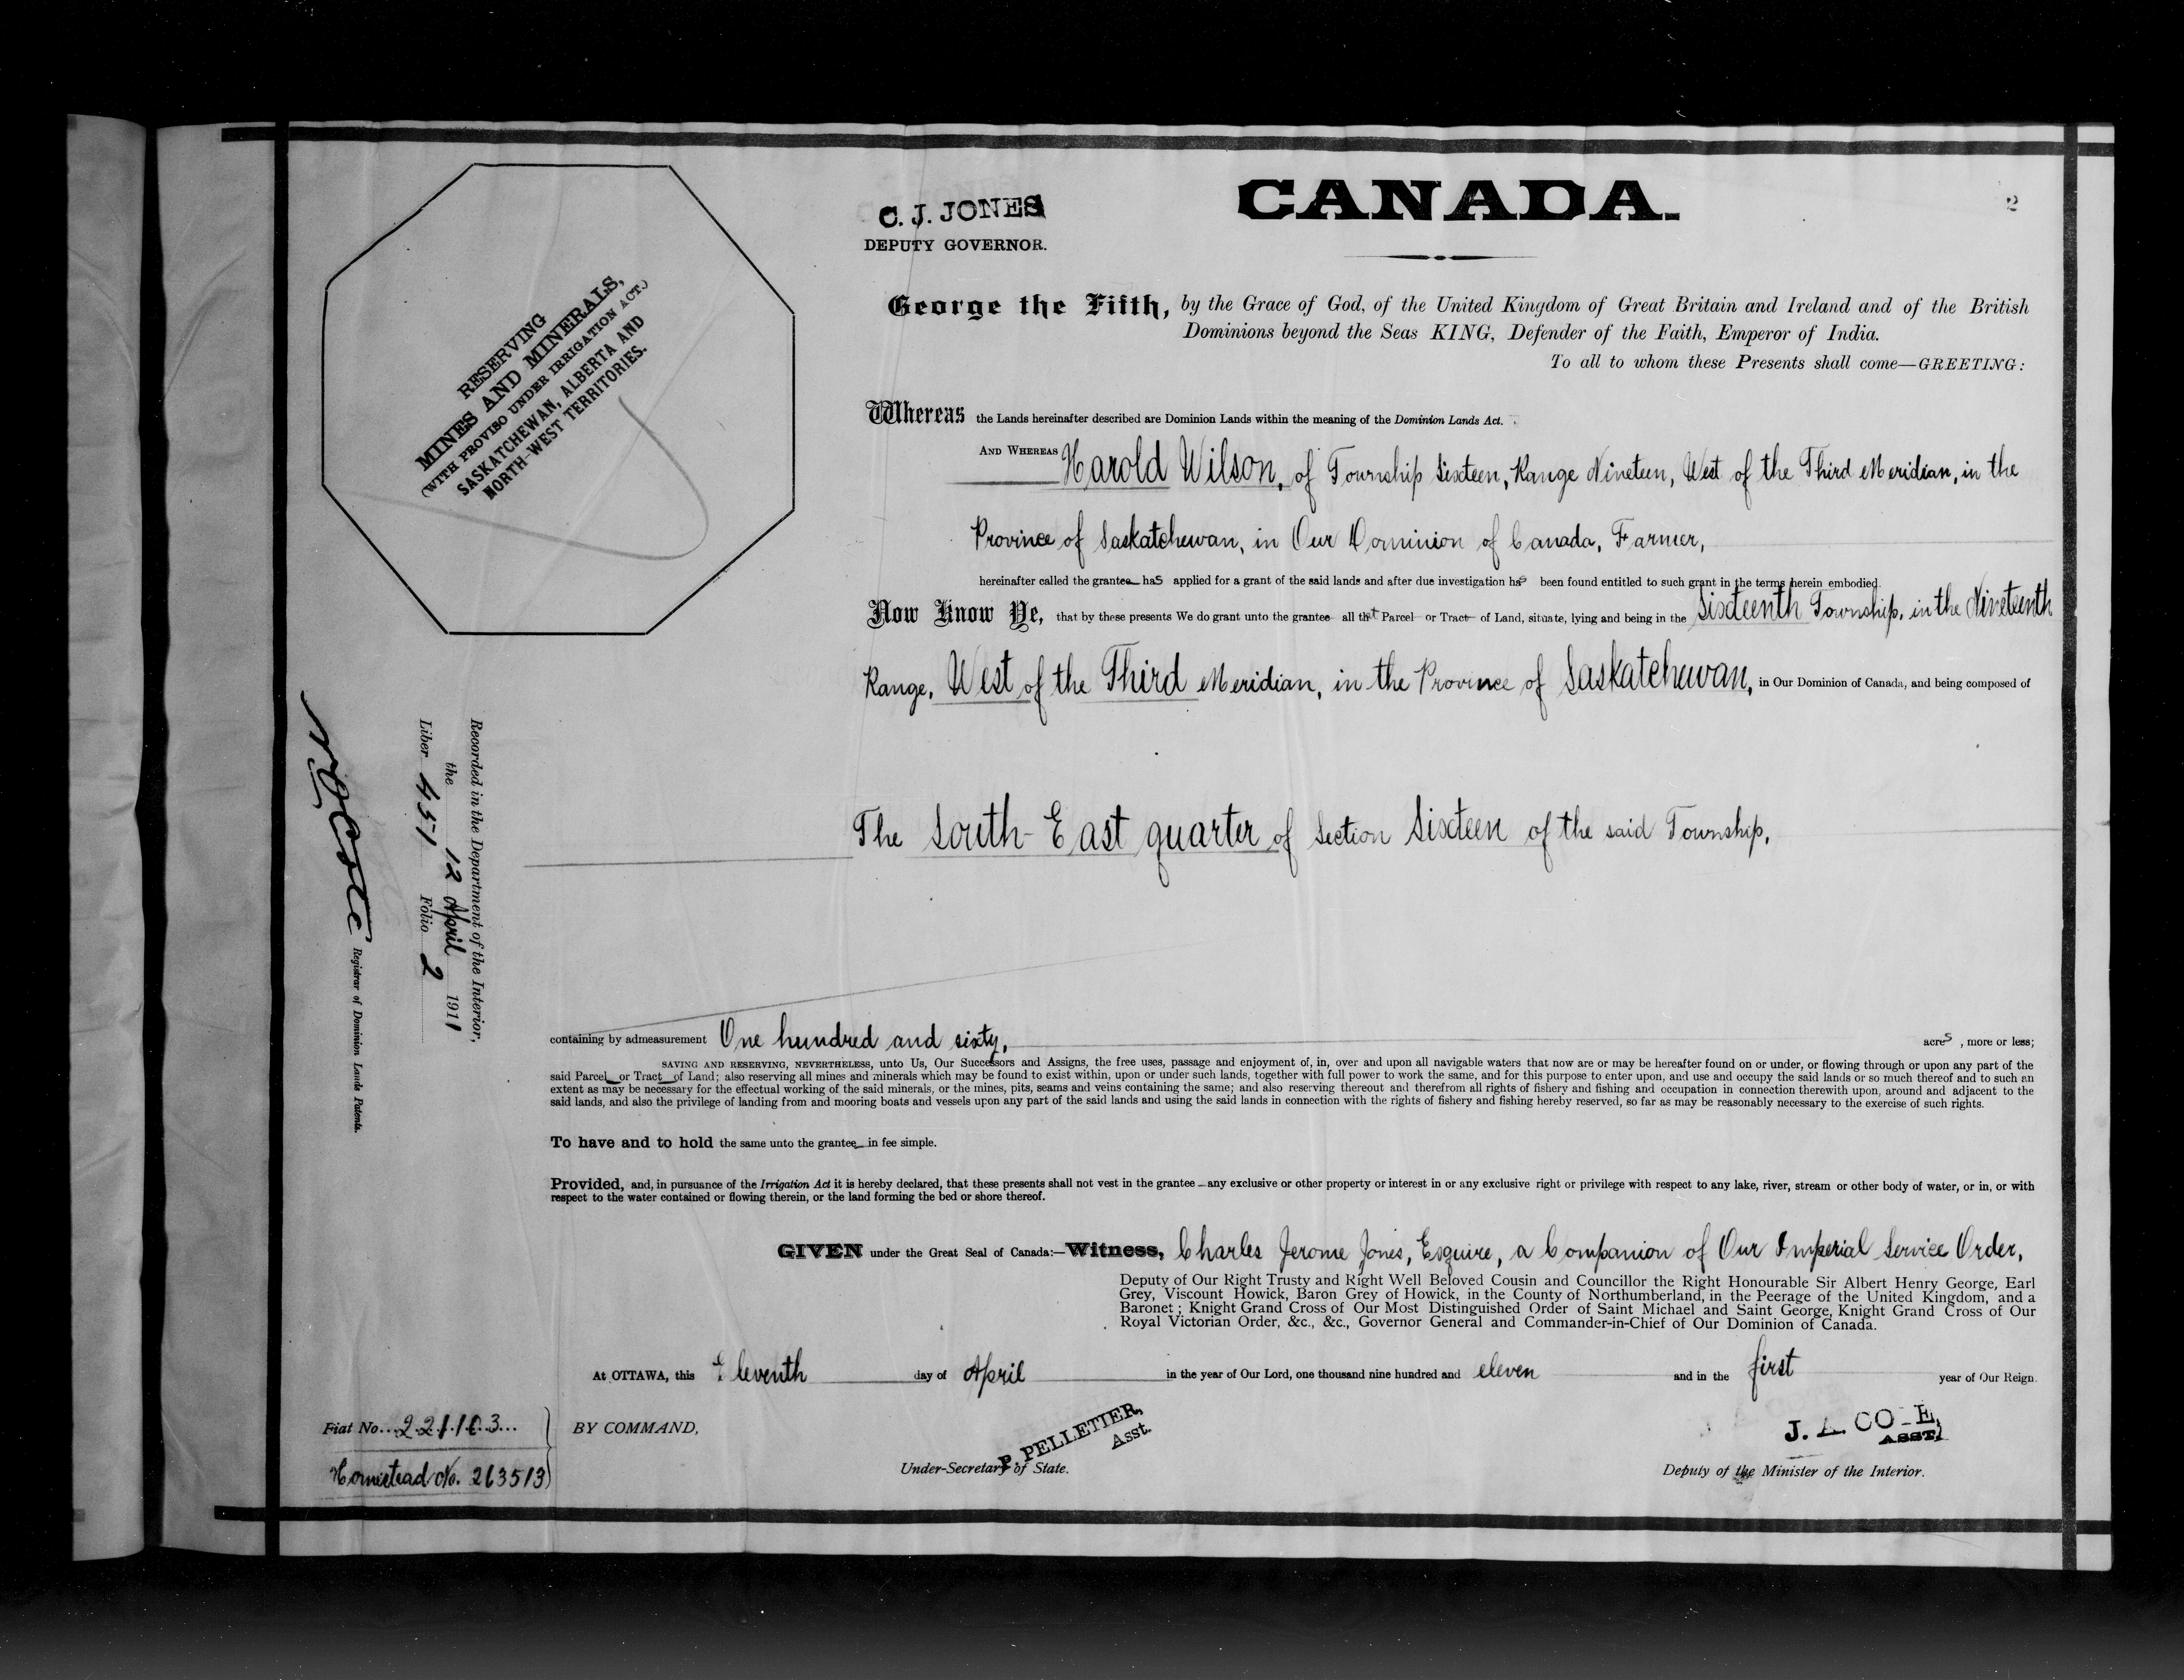 CANADA.
2
C. J. JONES
DEPUTY GOVERNOR.
RESERVING
MINES AND MINERALS,
(WITH PROVISO UNDER IRRIGATION ACT.)
SASKATCHEWAN, ALBERTA AND
NORTH-WEST TERRITORIES.
George the Fifth, by the Grace of God, of the United Kingdom of Great Britain and Ireland and of the British
Dominions beyond the Seas KING, Defender of the Faith, Emperor of India.
To all to whom these Presents shall come—GREETING:
Whereas the Lands hereinafter described are Dominion Lands within the meaning of the Dominion Lands Act.
AND WHEREAS Harold Wilson, of Township Sixteen, Range Nineteen, West of the Third Meridian, in the
Province of Saskatchewan, in Our Dominion of Canada, Farmer,
hereinafter called the grantee has applied for a grant of the said lands and after due investigation has been found entitled to such grant in the terms herein embodied.
Now Know Ye, that by these presents We do grant unto the grantee all that Parcel or Tract of Land, situate, lying and being in the Sixteenth Township, in the Nineteenth
Range, West of the Third Meridian, in the Province of Saskatchewan, in Our Dominion of Canada, and being composed of
The South-East quarter of Section Sixteen of the said Township,
Recorded in the Department of the Interior,
the 12 April 1911
Liber 451 Folio 2
Registrar of Dominion Lands Patents.
containing by admeasurement One hundred and sixty, acres, more or less;
SAVING AND RESERVING, NEVERTHELESS, unto Us, Our Successors and Assigns, the free uses, passage and enjoyment of, in, over and upon all navigable waters that now are or may be hereafter found on or under, or flowing through or upon any part of the
said Parcel or Tract of Land; also reserving all mines and minerals which may be found to exist within, upon or under such lands, together with full power to work the same, and for this purpose to enter upon, and use and occupy the said lands or so much thereof and to such an
extent as may be necessary for the effectual working of the said minerals, or the mines, pits, seams and veins containing the same; and also reserving thereout and therefrom all rights of fishery and fishing and occupation in connection therewith upon, around and adjacent to the
said lands, and also the privilege of landing from and mooring boats and vessels upon any part of the said lands and using the said lands in connection with the rights of fishery and fishing hereby reserved, so far as may be reasonably necessary to the exercise of such rights.
To have and to hold the same unto the grantee in fee simple.
Provided, and, in pursuance of the Irrigation Act it is hereby declared, that these presents shall not vest in the grantee any exclusive or other property or interest in or any exclusive right or privilege with respect to any lake, river, stream or other body of water, or in, or with
respect to the water contained or flowing therein, or the land forming the bed or shore thereof.
GIVEN under the Great Seal of Canada:—Witness, Charles Jerome Jones, Esquire, a Companion of Our Imperial Service Order,
Deputy of Our Right Trusty and Right Well Beloved Cousin and Councillor the Right Honourable Sir Albert Henry George, Earl
Grey, Viscount Howick, Baron Grey of Howick, in the County of Northumberland, in the Peerage of the United Kingdom, and a
Baronet; Knight Grand Cross of Our Most Distinguished Order of Saint Michael and Saint George, Knight Grand Cross of Our
Royal Victorian Order, &c., &c., Governor General and Commander-in-Chief of Our Dominion of Canada.
At OTTAWA, this Eleventh day of April in the year of Our Lord, one thousand nine hundred and eleven and in the first year of Our Reign.
Fiat No. 221103
Homestead No. 263513
BY COMMAND,
P. PELLETIER,
Asst.
Under-Secretary of State.
J. A. CO E,
ASST.
Deputy of the Minister of the Interior.